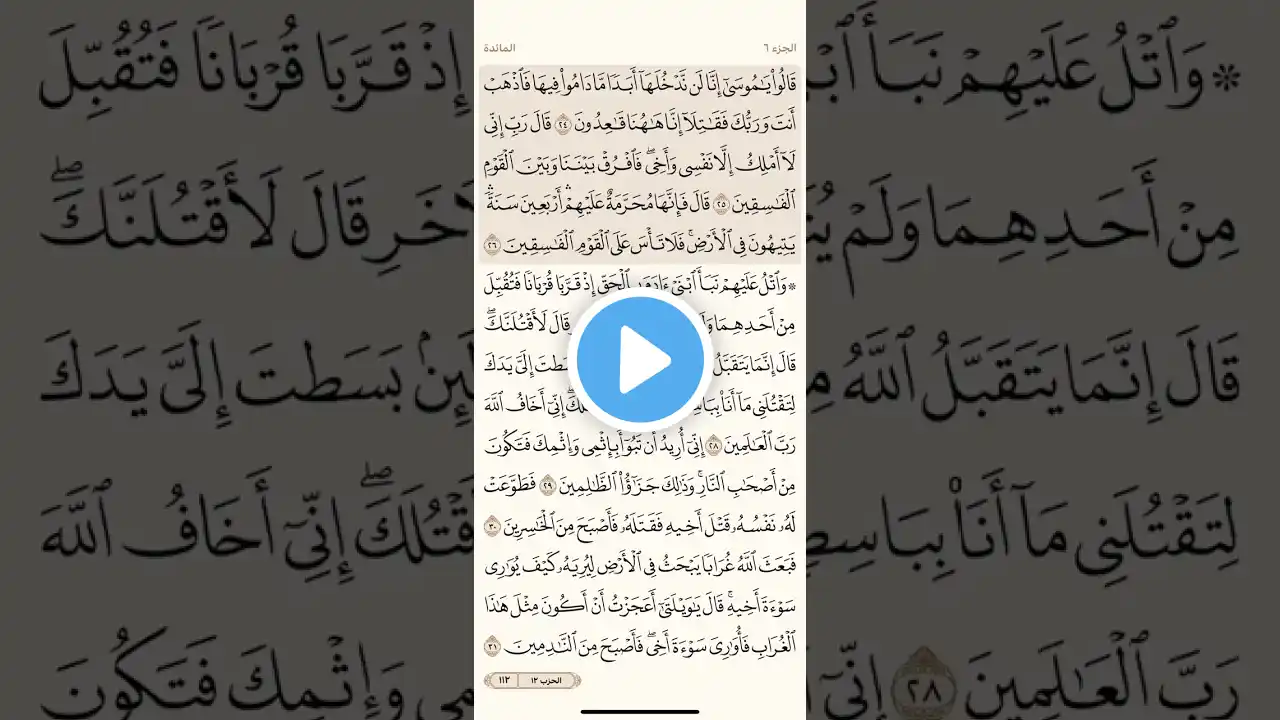 الجزء ٦
المائدة
قَالُواْ يَٰمُوسَىٰٓ إِنَّا لَن نَّدْخُلَهَآ أَبَدٗا مَّا دَامُواْ فِيهَا فَٱذْهَبْ
أَنتَ وَرَبُّكَ فَقَٰتِلَآ إِنَّا هَٰهُنَا قَٰعِدُونَ ٢٤ قَالَ رَبِّ إِنِّي
لَآ أَمْلِكُ إِلَّا نَفْسِي وَأَخِيۖ فَٱفْرُقْ بَيْنَنَا وَبَيْنَ ٱلْقَوْمِ
ٱلْفَٰسِقِينَ ٢٥ قَالَ فَإِنَّهَا مُحَرَّمَةٌ عَلَيْهِمْۛ أَرْبَعِينَ سَنَةٗۛ
يَتِيهُونَ فِي ٱلْأَرْضِۚ فَلَا تَأْسَ عَلَى ٱلْقَوْمِ ٱلْفَٰسِقِينَ ٢٦
۞ وَٱتْلُ عَلَيْهِمْ نَبَأَ ٱبْنَيْ ءَادَمَ بِٱلْحَقِّ إِذْ قَرَّبَا قُرْبَانٗا فَتُقُبِّلَ
مِنْ أَحَدِهِمَا قَالَ لَأَقْتُلَنَّكَۖ
قَالَ إِنَّمَا يَتَقَبَّلُ بَسَطتَ إِلَيَّ يَدَكَ
لِتَقْتُلَنِي مَآ أَنَا۠ إِنِّيٓ أَخَافُ ٱللَّهَ
رَبَّ ٱلْعَٰلَمِينَ ٢٨ إِنِّيٓ أُرِيدُ أَن تَبُوٓأَ بِإِثْمِي وَإِثْمِكَ فَتَكُونَ
مِنْ أَصْحَٰبِ ٱلنَّارِۚ وَذَٰلِكَ جَزَٰٓؤُاْ ٱلظَّٰلِمِينَ ٢٩ فَطَوَّعَتْ
لَهُۥ نَفْسُهُۥ قَتْلَ أَخِيهِ فَقَتَلَهُۥ فَأَصْبَحَ مِنَ ٱلْخَٰسِرِينَ ٣٠
فَبَعَثَ ٱللَّهُ غُرَابٗا يَبْحَثُ فِي ٱلْأَرْضِ لِيُرِيَهُۥ كَيْفَ يُوَٰرِي
سَوْءَةَ أَخِيهِۚ قَالَ يَٰوَيْلَتَىٰٓ أَعَجَزْتُ أَنْ أَكُونَ مِثْلَ هَٰذَا
ٱلْغُرَابِ فَأُوَٰرِيَ سَوْءَةَ أَخِيۖ فَأَصْبَحَ مِنَ ٱلنَّٰدِمِينَ ٣١
الحزب ١٢
١١٢
۞ وَٱتْلُ عَلَيْهِمْ نَبَأَ إِذْ قَرَّبَا قُرْبَانٗا فَتُقُبِّلَ
مِنْ أَحَدِهِمَا وَلَمْ قَالَ لَأَقْتُلَنَّكَۖ
قَالَ إِنَّمَا يَتَقَبَّلُ ٱللَّهُ بَسَطتَ إِلَيَّ يَدَكَ
لِتَقْتُلَنِي مَآ أَنَا۠ إِنِّيٓ أَخَافُ ٱللَّهَ
رَبَّ ٱلْعَٰلَمِينَ ٢٨ إِنِّيٓ وَإِثْمِكَ فَتَكُونَ